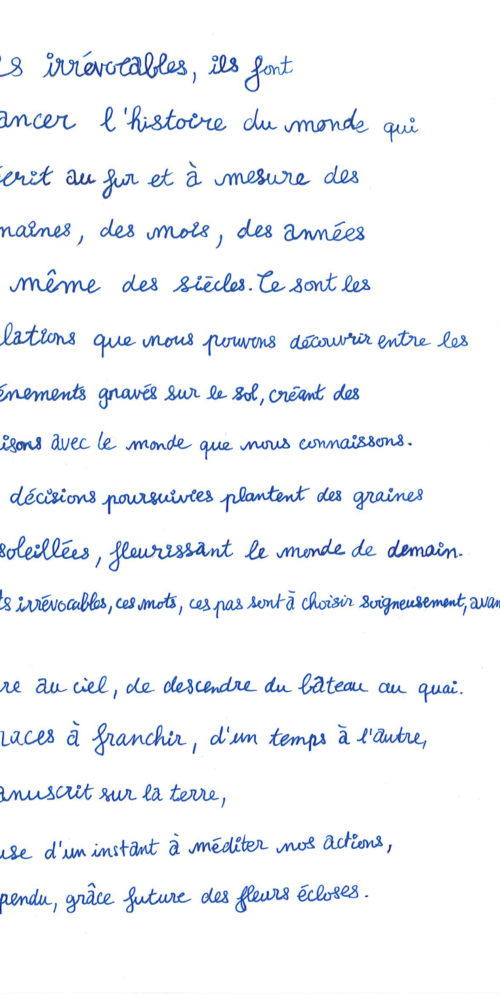 s irrévocables, ils font
ancer l'histoire du monde qui
écrit au fur et à mesure des
maines, des mois, des années
même des siècles. Ce sont les
lations que nous pouvons découvrir entre les
énements gravés sur le sol, créant des
isons avec le monde que nous connaissons.
décisions poursuivies plantent des graines
soleillées, fleurissant le monde de demain.
ts irrévocables, ces mots, ces pas sont à choisir soigneusement, avan
re au ciel, de descendre du bâteau au quai.
races à franchir, d'un temps à l'autre,
anuscrit sur la terre,
use d'un instant à méditer nos actions,
pendu, grâce future des fleurs écloses.